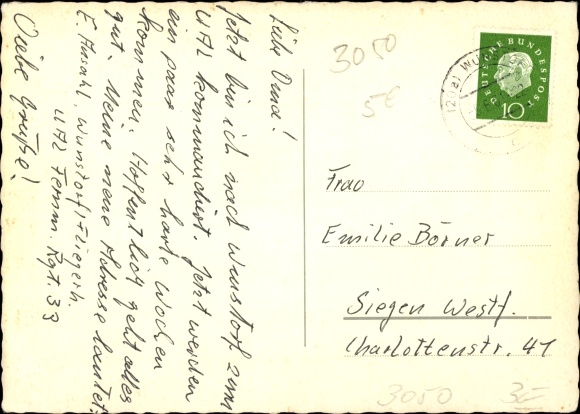 Liebe Omma!
Jetzt bin ich nach Wunstorf zum
UAL kommandiert. Jetzt werden
ein paar sehr harte Wochen
kommen. Hoffentlich geht alles
gut. Meine neue Adresse lautet:
Wunstorf, Fliegerh.
UAL Fernm. Rgt. 33
Viele Grüße!
3050
5€
DEUTSCHE BUNDESPOST
10
Frau
Emilie Börner
Siegen Westf.
Charlottenstr. 41
3050
3,-